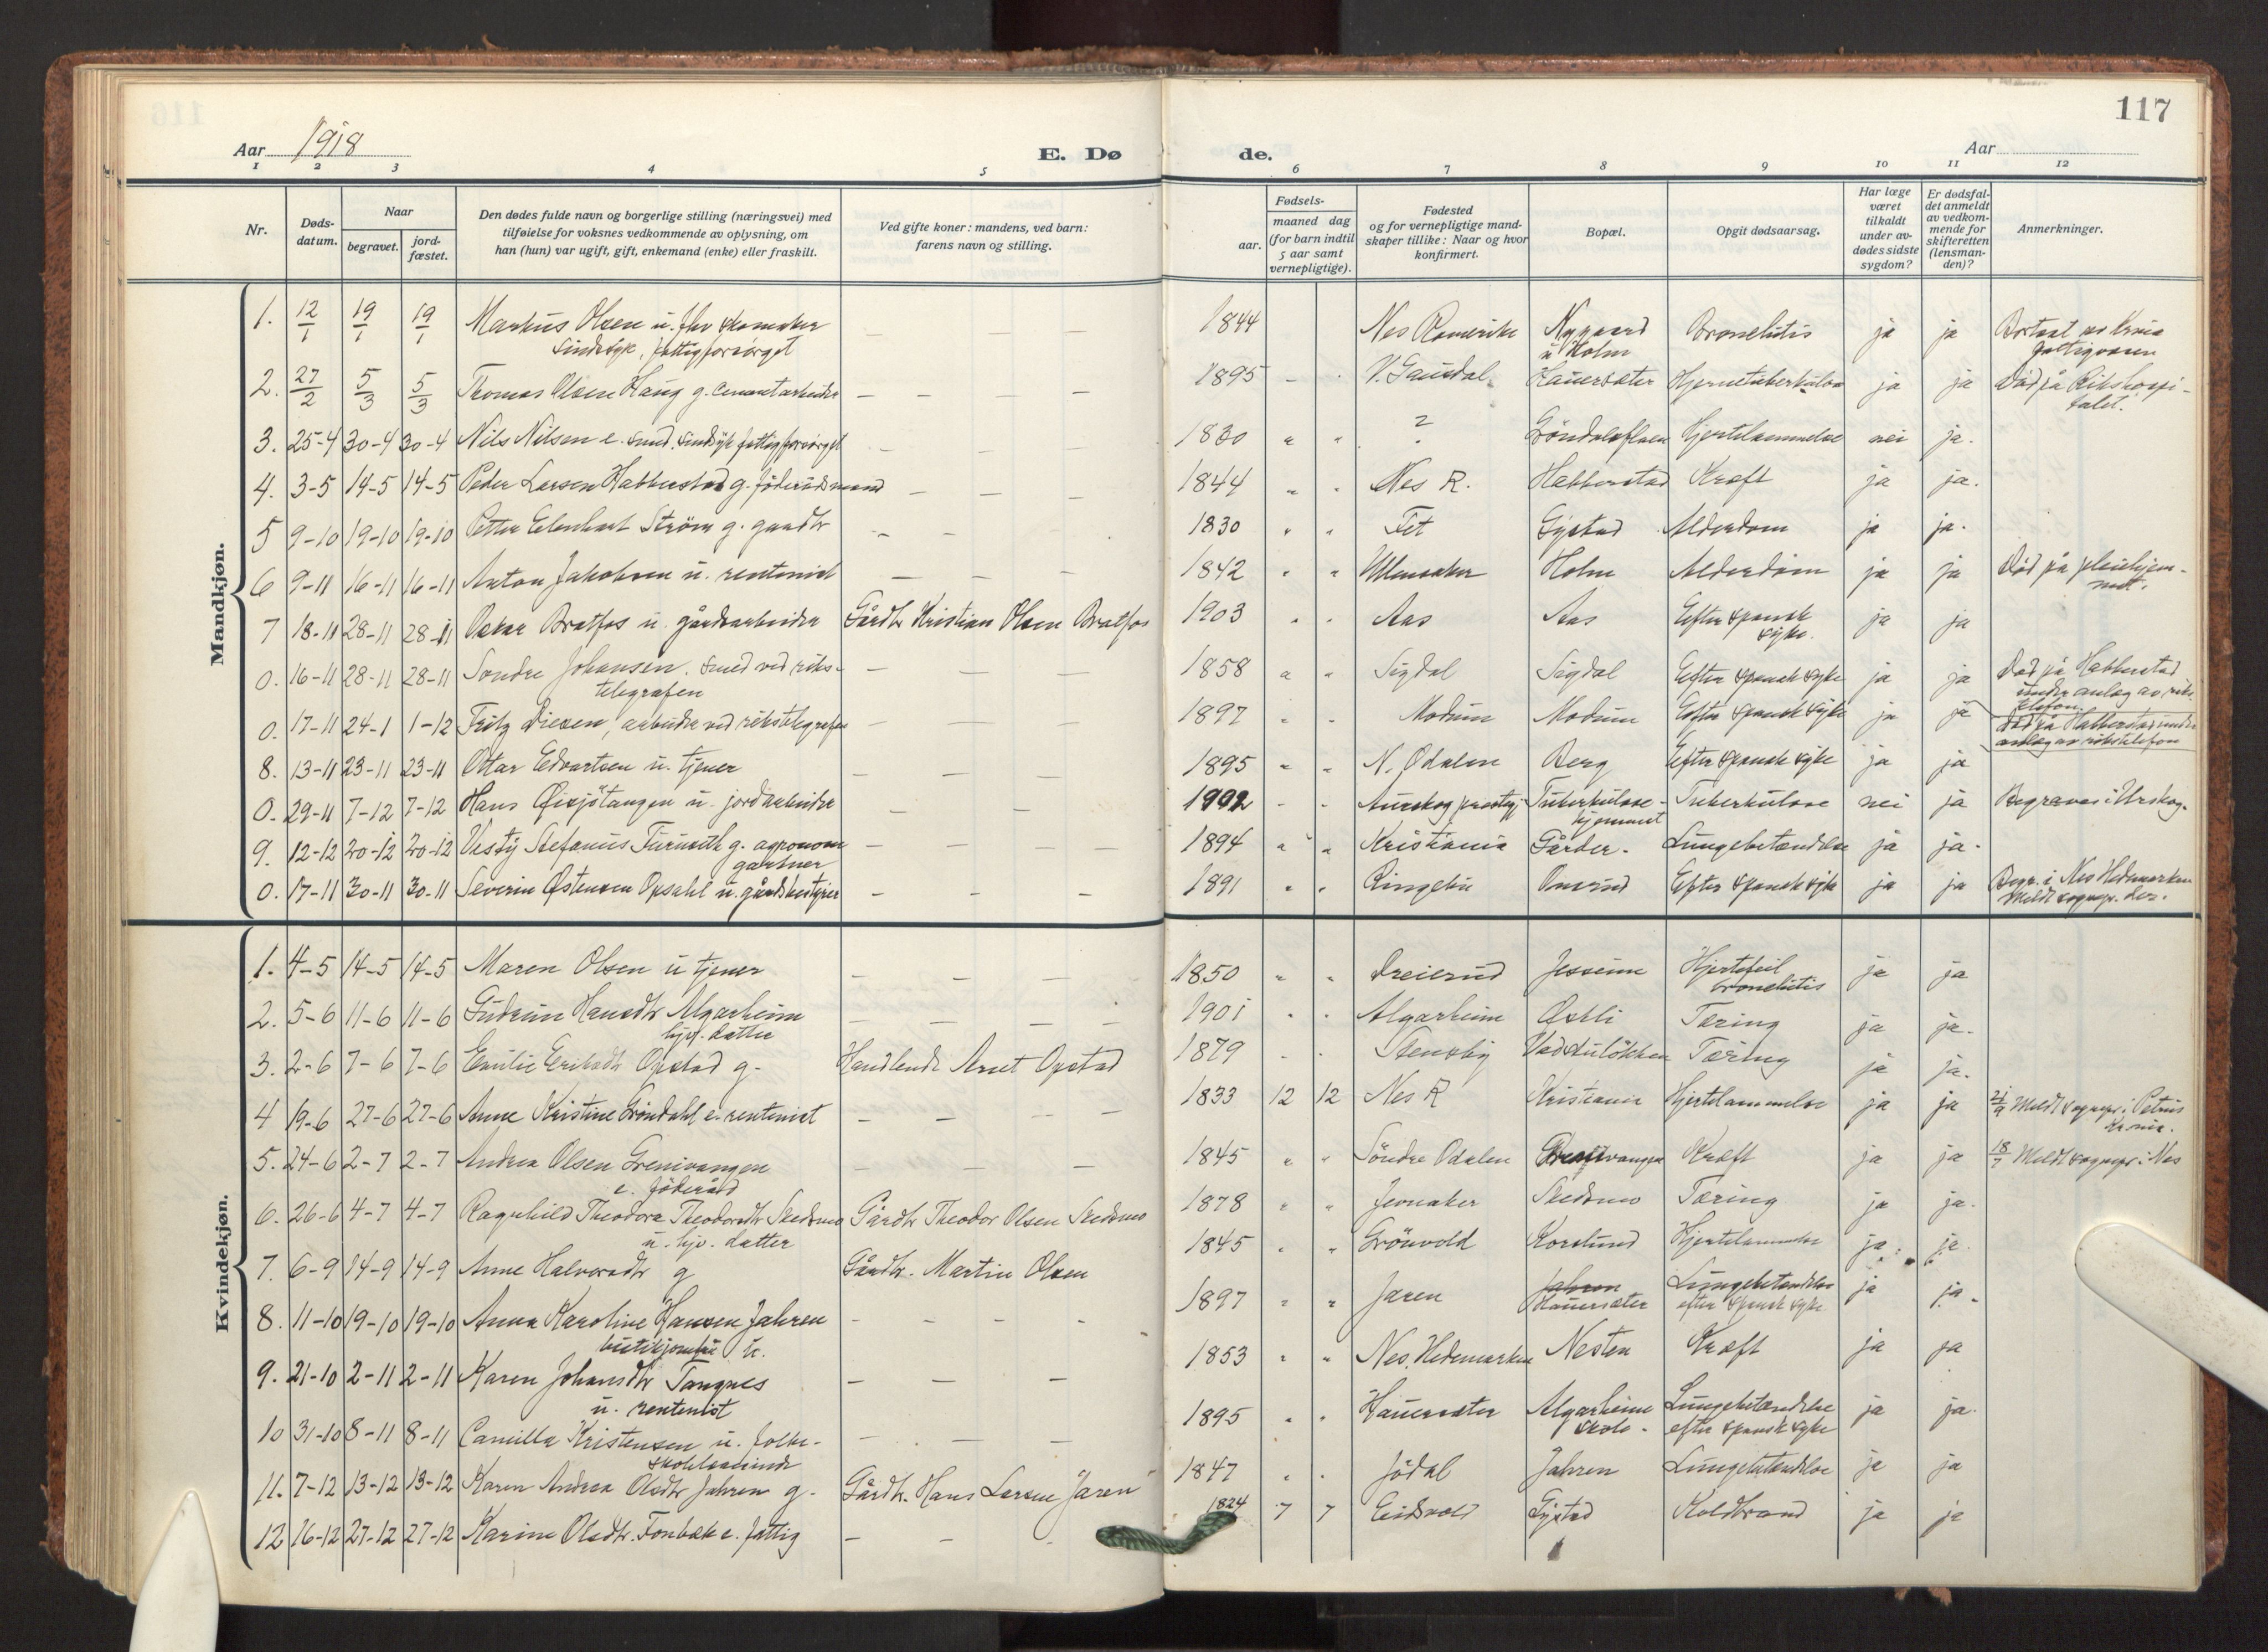 117
Aar 1918
E. Dø
de.
Aar
1 2 3 4 5 6 7 8 9 10 11 12
Nr.
Døds-
datum.
Naar
begravet.
jord-
fæstet.
Den dødes fulde navn og borgerlige stilling (næringsvei) med
tilføielse for voksnes vedkommende av oplysning, om
han (hun) var ugift, gift, enkemand (enke) eller fraskilt.
Ved gifte koner: mandens, ved barn:
farens navn og stilling.
Fødsels-
aar.
maaned dag
(for barn indtil
5 aar samt
vernepligtige).
Fødested
og for vernepligtige mand-
skaper tillike: Naar og hvor
konfirmert.
Bopæl.
Opgit dødsaarsag.
Har læge
været
tilkaldt
under av-
dødes sidste
sygdom?
Er dødsfal-
det anmeldt
av vedkom-
mende for
skifteretten
(lensman-
den)?
Anmerkninger.
Mandkjøn.
1. 12/1 19/1 19/1 Markus Olsen u. fhv skomaker — — — 1844 Nes Romerike Nygaard Bronchitis ja ja
sindssyk, fattigforsørget u Holm
2. 27/2 5/3 5/3 Thomas Olsen Haug g. Cementarbeider — — — — 1895 V. Gausdal Hauersæter Hjernetuberkulose ja ja Død på Rikshospi-
talet.
3. 25-4 30-4 30-4 Nils Nilsen e. smed. sindssyk fattigforsørget — — — 1830 " " ? Gröndalsflaen Hjertelammelse nei ja.
4. 3-5 14-5 14-5 Peder Larsen Habberstad g. föderådsmand — — — 1844 " " Nes R. Habberstad Kræft ja ja.
5 9-10 19-10 19-10 Petter Edenhart Ström g. gaardbr — — — 1830 " " Fet Gystad Alderdom ja ja.
6 9-11 16-11 16-11 Anton Jakobsen u. rentenist — — — 1842 " " Ullensaker Holm Alderdom ja ja Død på pleiehjem-
met.
7 18-11 28-11 28-11 Oskar Bratfos u. gårdsarbeider Gårdbr Kristian Olsen Bratfos 1903 " " Aas Aas Efter spansk ja ja
syke.
0. 16-11 28-11 28-11 Sondre Johansen. smed ved riks- — — — 1858 " " Sigdal Sigdal Efter spansk syke ja ja Død på Habberstad
telegrafen under anlæg av riks-
telefon.
0. 17-11 24-1 1-12 Fritz Diesen, arbeider ved rikstelegrafen — — — 1897 " " Modum Modum Efter spansk syke ja ja Død på Habberstad under
anlæg av rikstelefon
8. 13-11 23-11 23-11 Ottar Edvartsen u. tjener — — — 1895 " " N. Odalen Berg Efter spansk syke ja ja
0. 29-11 7-12 7-12 Hans Øisjötangen u. jordarbeider — — — 1902 - - Aurskog prestegj. Tuberkulose- Tuberkulose nei ja Begraves i Urskog.
hjemmet
9. 12-12 20-12 20-12 Vesty Stefanus Furuseth g. agronom — — — — 1894 " " Kristiania Gårder. Lungebetændelse ja ja.
gartner
0. 17-11 30-11 30-11 Severin Østensen Opsahl u. gårdsbestyrer — — — 1891 " " Ringebu Omsrud Efter spansk syke ja ja Begr. i Nes Hedemarken
Meldt sognepr. der.
Kvindekjøn.
1. 4-5 14-5 14-5 Maren Olsen u tjener — — — 1850 " " Dreierud Jessum Hjertefeil ja ja
bronchitis
2. 5-6 11-6 11-6 Gudrun Hansdtr Algarheim — — — — 1901 " " Algarheim Østli Tæring ja ja.
hjv. datter
3. 2-6 7-6 7-6 Emilie Eriksdtr Opstad g. Handlende Anet Opstad 1879 " " Stensby Tæring ja ja.
4 19-6 27-6 27-6 Anne Kristine Gröndahl e. rentenist — — — — 1833 12 12 Nes R Kristiania Hjertelammelse ja ja 21/9 Meldt sognepr. i Petrus
Kr.nia.
5. 24-6 2-7 2-7 Andrea Olsen Grenivangen — — — 1845 " " Söndre Odalen Grenivangen Kræft ja ja 18/7 Meldt sognepr. i Nes
e. föderåd
6. 26-6 4-7 4-7 Ragnhild Theodora Theodorsdtr Skedsmo Gårdbr Theodor Olsen Skedsmo 1878 " " Jevnaker Skedsmo Tæring ja ja.
u. hjv. datter
7. 6-9 14-9 14-9 Anne Halvorsdtr g Gårdbr. Martin Olsen 1845 " " Grönvold Korslund Hjertelammelse ja. ja.
8. 11-10 19-10 19-10 Anna Karoline Hansen Jahren — — — — 1897 " " Jaren Jahren Lungebetændelse ja ja.
butikjomfru u. Hauersæter efter spansk syke
9. 21-10 2-11 2-11 Karen Johansdtr Tangnes — — — 1853 " " Nes. Hedemarken Nesten Kræft ja ja
u. rentenist
10 31-10 8-11 8-11 Camilla Kristensen u. folke- — — — 1895 " " Hauersæter Algarheim Lungebetændelse ja ja.
skolelærerinde skole. efter spansk syke
11. 7-12 13-12 13-12 Karen Andrea Olsdtr Jahren g. Gårdbr. Hans Larsen Jaren 1847 " " Jödal Jahren Lungebetændelse ja ja
12 16-12 27-12 27-12 Karine Olsdtr. Fonbæk e. fattig — — — 1824 7 7 Eidsvold Gystad Koldbrand ja ja